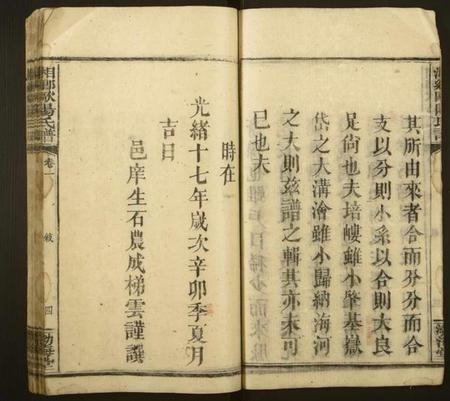 其所由來者合而分分而合
支以分則小系以合則大良
足尙也夫培嶁雖小肇基嶽
岱之大溝澮雖小歸納海河
之大則玆譜之輯其亦未可
已也夫
時在
光緒十七年歲次辛卯季夏月
吉日
邑庠生石農成梯雲謹譔
湘鄉歐陽氏譜
卷一
敍
四